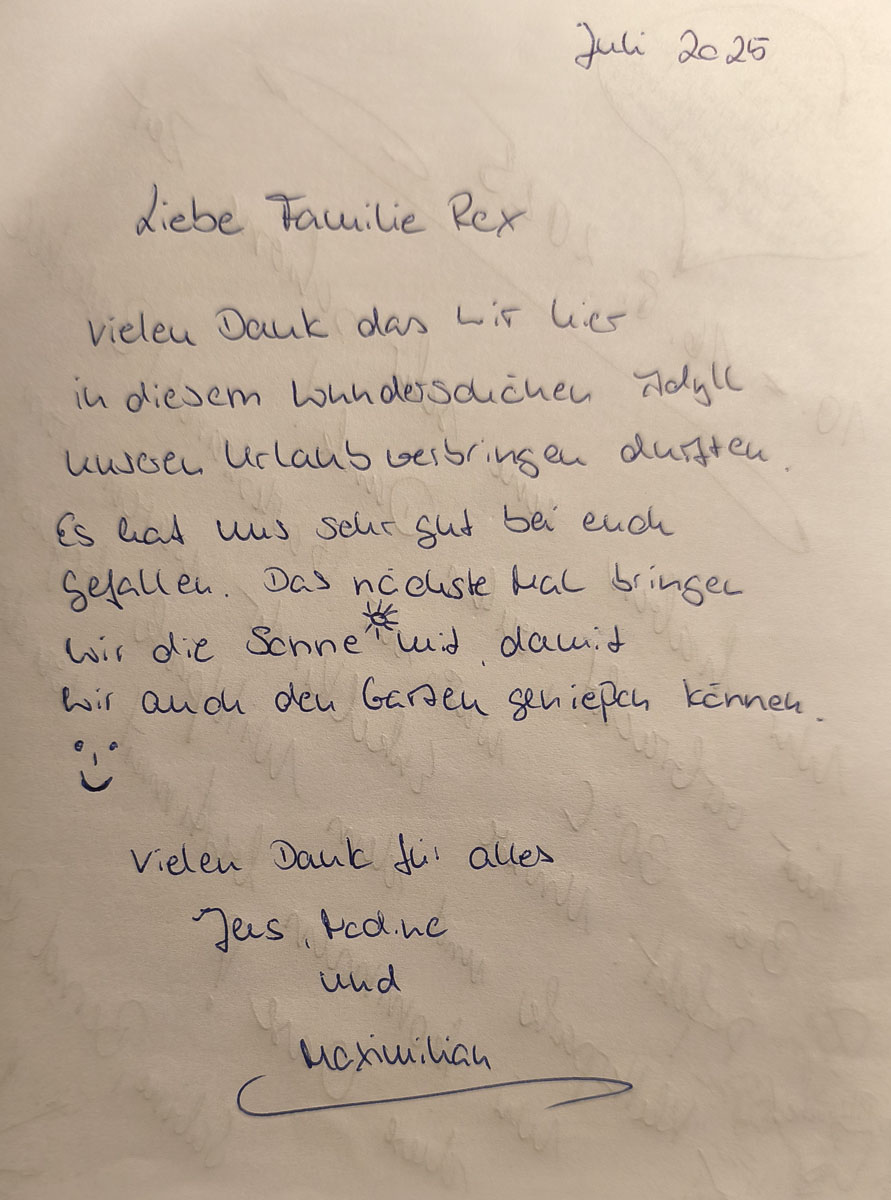 Juli 2025
Liebe Familie Rex
Vielen Dank das wir hier
in diesem wunderschönen Idyll
unseren Urlaub verbringen durften.
Es hat uns sehr gut bei euch
gefallen. Das nächste Mal bringen
wir die Sonne mit, damit
wir auch den Garten genießen können.
Vielen Dank für alles
Jens, Nadine
und
Maximilian